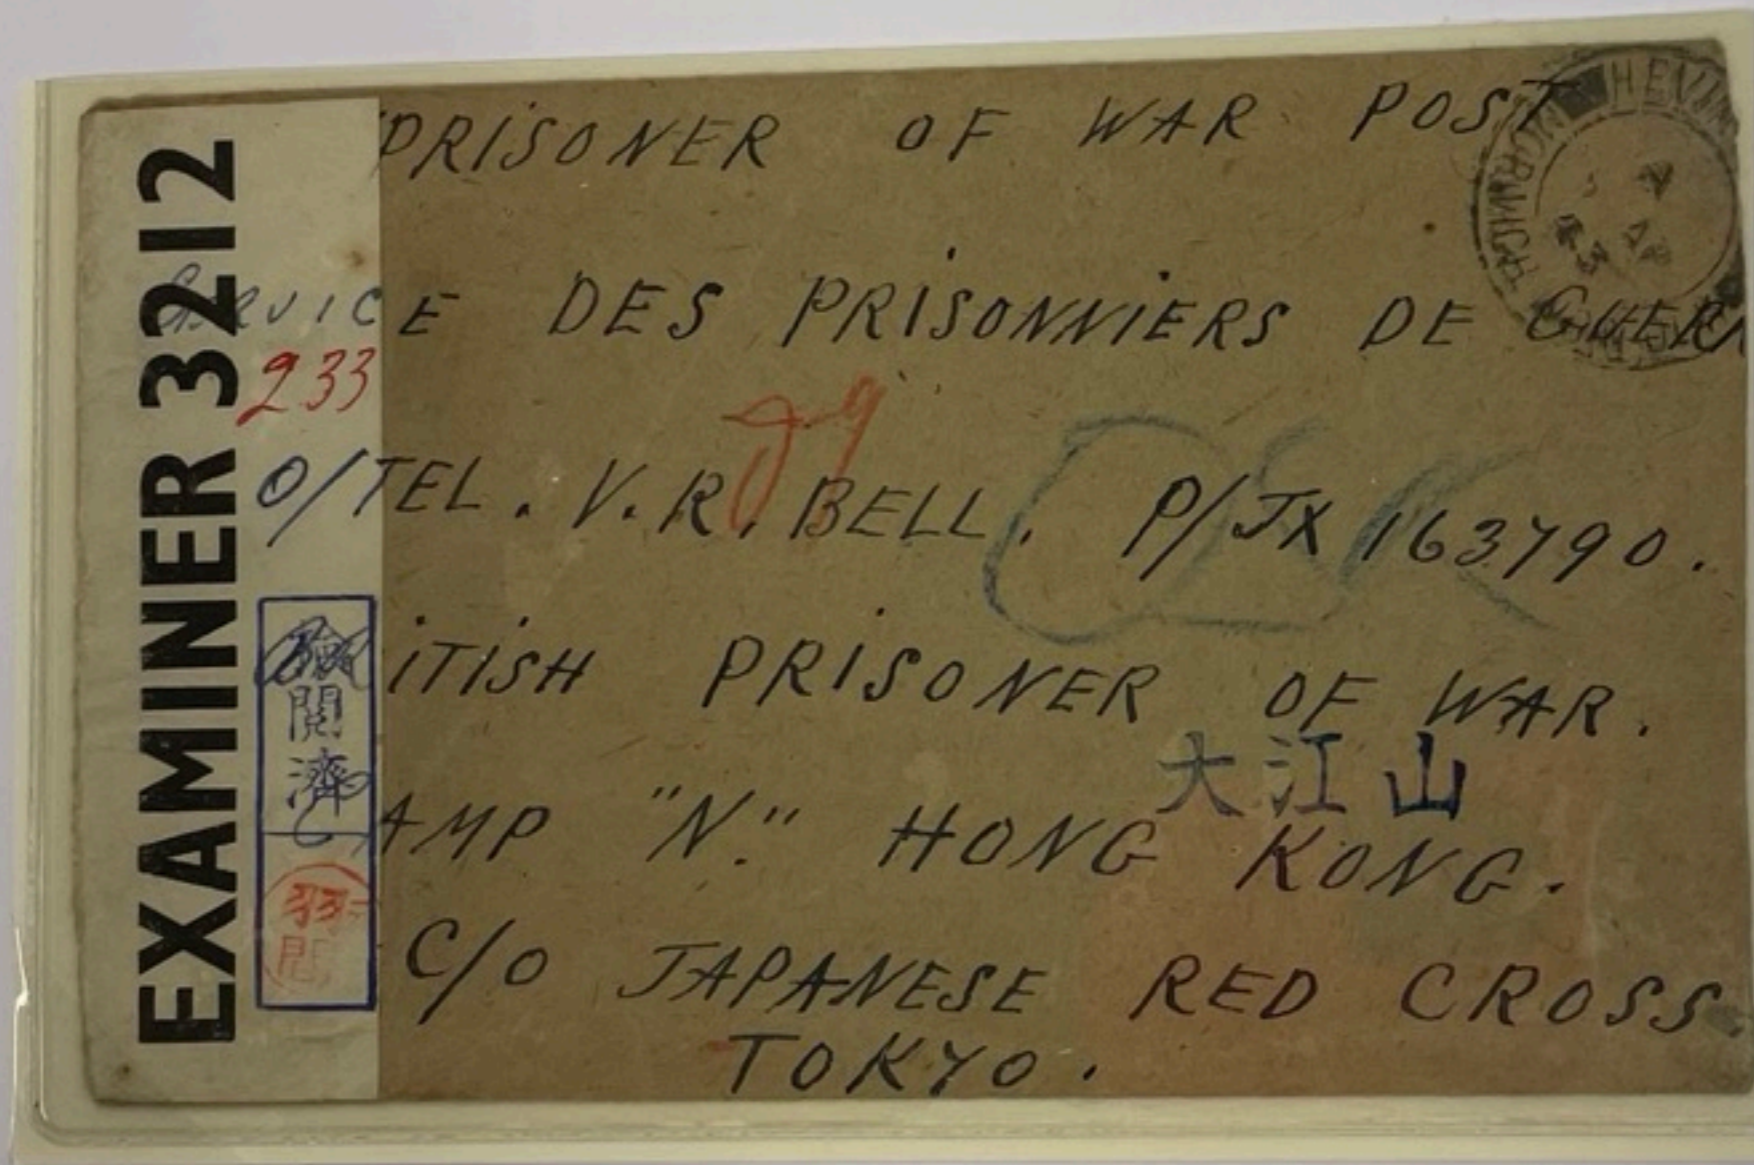 EXAMINER 3212
PRISONER OF WAR POST
SERVICE DES PRISONNIERS DE GUERR
233
O/TEL. V.R. BELL. P/JX 163790.
ITISH PRISONER OF WAR.
大江山
AMP "N." HONG KONG.
C/O JAPANESE RED CROSS
TOKYO.
閲濟